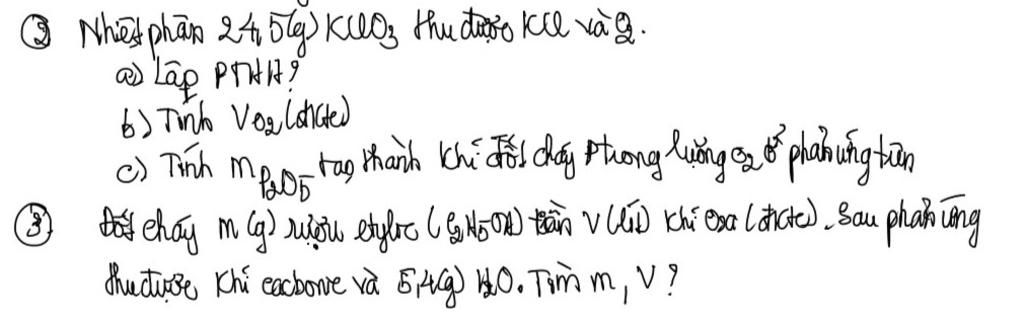 ② Nhiệt phân 24,5(g) KClO3 thu được KCl và O2.
a) Lập PTHH?
b) Tính VO2 (đktc)
c) Tính mP2O5 tạo thành khi đốt cháy P trong lượng O2 ở phản ứng trên
③ Đốt cháy m (g) rượu etylic (C2H5OH) cần V (lít) khí oxi (đktc). Sau phản ứng
thu được khí cacbonic và 5,4(g) H2O. Tìm m, V?